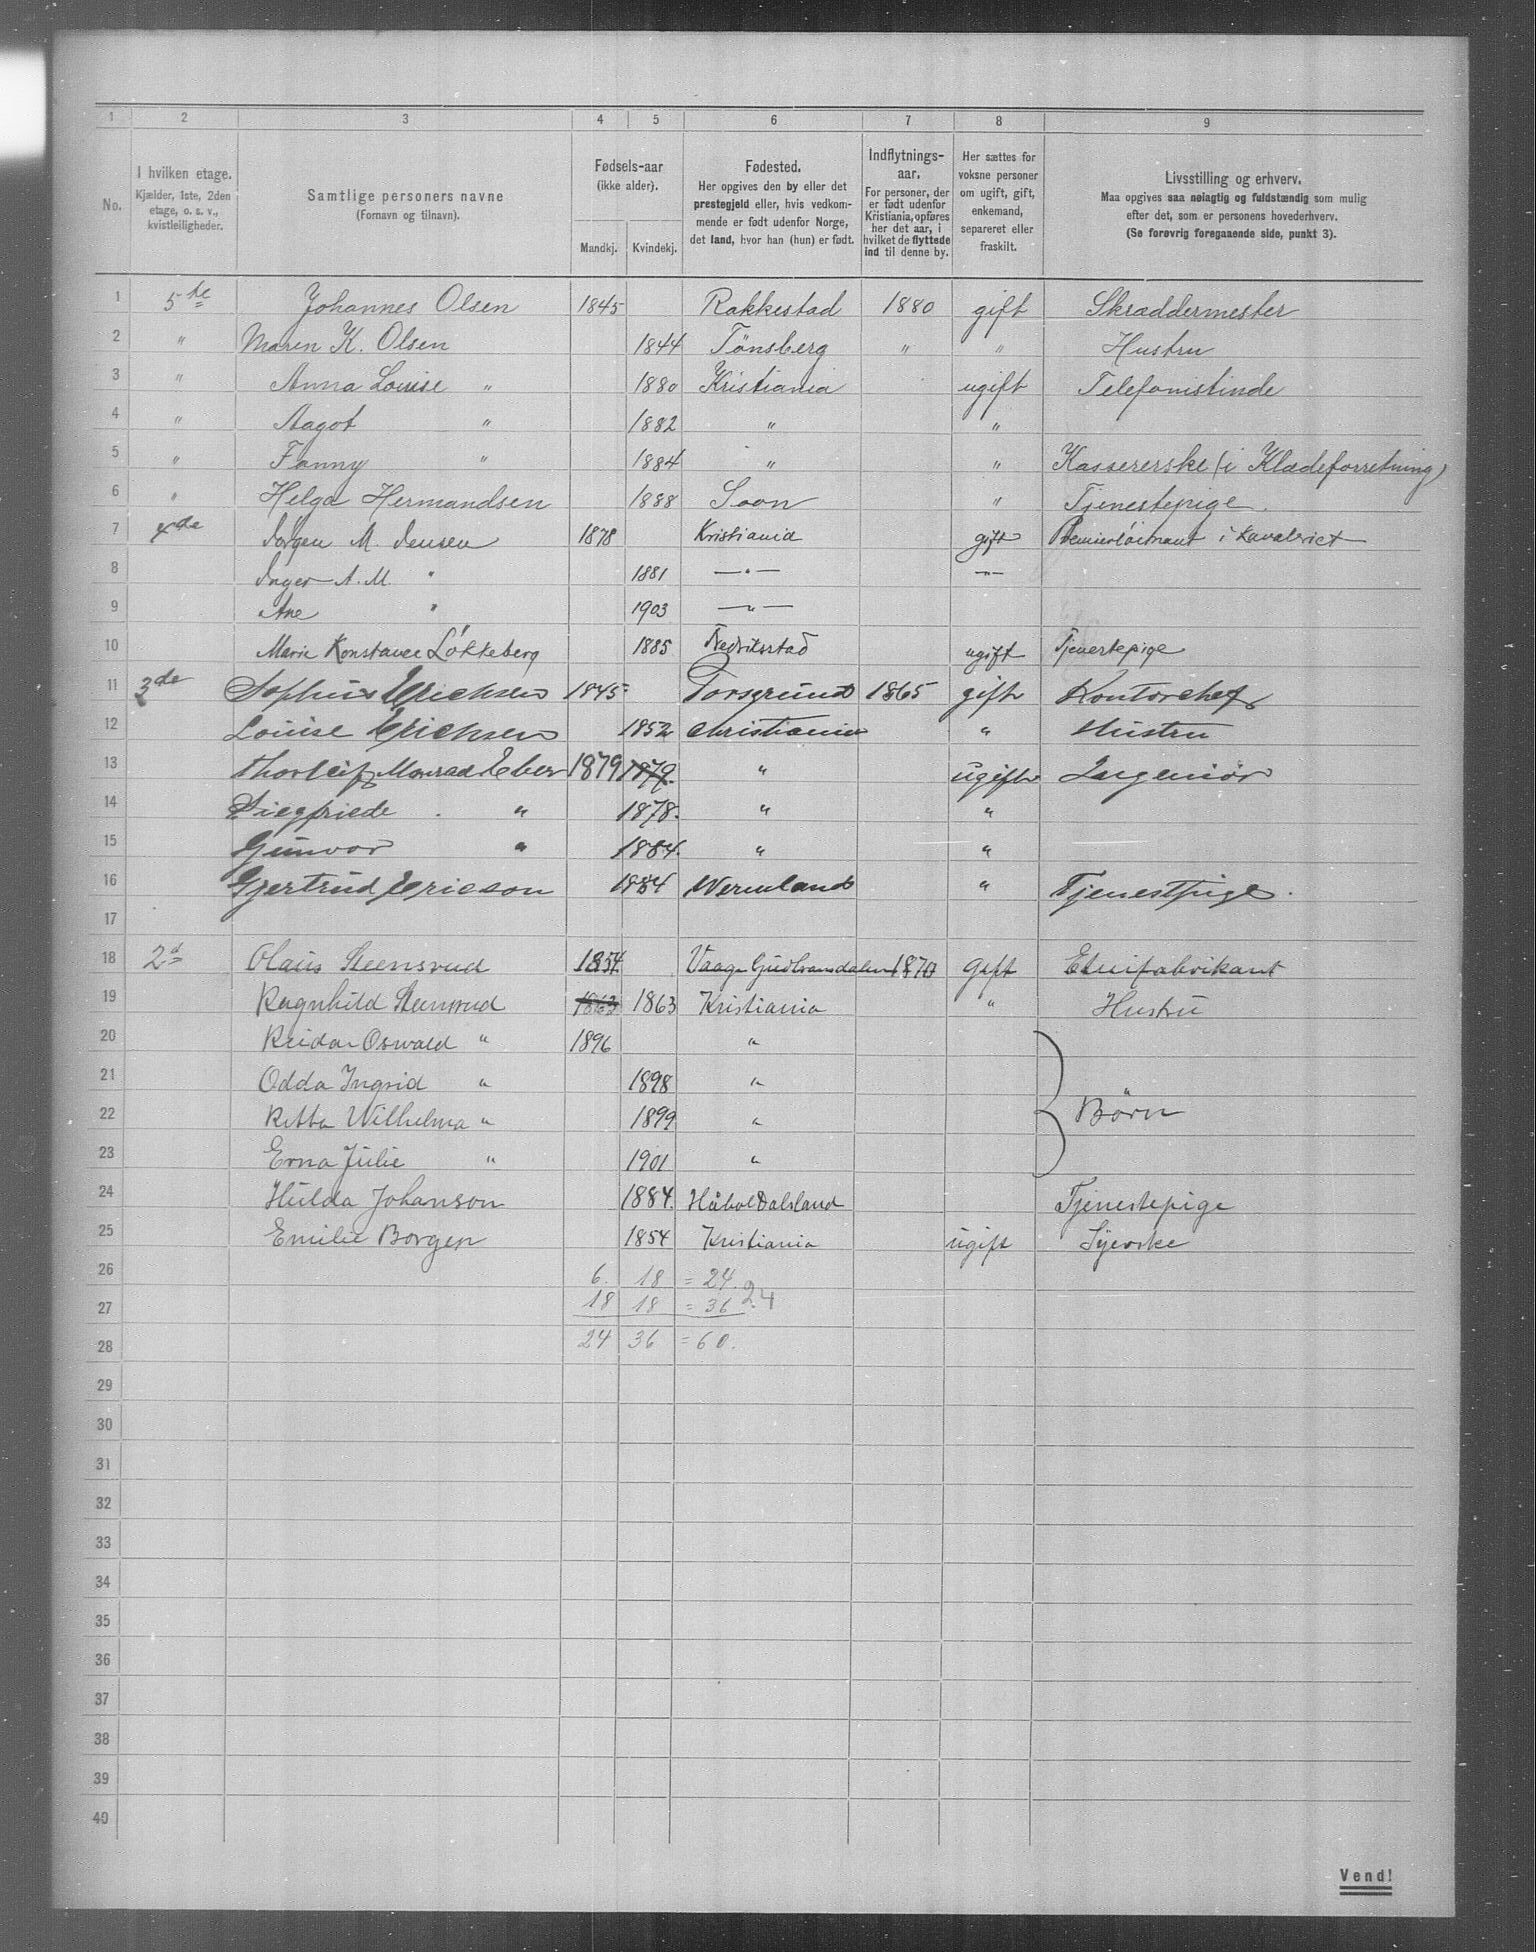 1 2 3 4 5 6 7 8 9
No.
I hvilken etage.
Kjælder, 1ste, 2den
etage, o. s. v.,
kvistleiligheder.
Samtlige personers navne
(Fornavn og tilnavn).
Fødsels-aar
(ikke alder).
Mandkj. Kvindekj.
Fødested.
Her opgives den by eller det
prestegjeld eller, hvis vedkom-
mende er født udenfor Norge,
det land, hvor han (hun) er født.
Indflytnings-
aar.
For personer, der
er født udenfor
Kristiania, opføres
her det aar, i
hvilket de flyttede
ind til denne by.
Her sættes for
voksne personer
om ugift, gift,
enkemand,
separeret eller
fraskilt.
Livsstilling og erhverv.
Maa opgives saa nøiagtig og fuldstændig som mulig
efter det, som er personens hovederhverv.
(Se forøvrig foregaaende side, punkt 3).
1 5te Johannes Olsen 1845 Rakkestad 1880 gift Skræddermester
2 " Maren K. Olsen 1844 Tönsberg " " Hustru
3 " Anna Louise " 1880 Kristiania ugift Telefonistinde
4 " Aagot " 1882 " "
5 " Fanny " 1884 " " Kassererske (i Klædeforretning)
6 " Helga Hermandsen 1888 Soon " Tjenestepige.
7 4de Jörgen M. Jensen 1878 Kristiania gift Premierløitnant i Kavaleriet
8 Inger A. M. " 1881 —"— —"—
9 Ane " 1903 —"—
10 Marie Konstance Løkkeberg 1885 Fredriksstad ugift Tjenestepige
11 3de Sophus Erichsen 1845 Porsgrund 1865 gift Kontorchef
12 Louise Erichsen 1852 Christiania " Hustru
13 Thorleif Monrad Eber 1879 1879. " ugift Ingeniör
14 Siegfriede . " 1878. " "
15 Gunvor " 1884. " "
16 Gjertrud Ericson 1884 Wermland " Tjenestpige.
17
18 2d Olaus Steensrud 1854. Vaage Gudbransdalen 1870 gift Etuifabrikant
19 Ragnhild Steensrud 1863 1863 Kristiania " Hustru
20 Reidar Oswald " 1896 "
21 Odda Ingrid " 1898 "
22 Retta Wilhelma " 1899 " Börn
23 Erna Julie " 1901 "
24 Hulda Johanson 1884. Håbol Dalsland Tjenestepige
25 Emilie Borgen 1854 Kristiania ugift Syerske
26 6. 18 = 24.
27 18 18 = 36 24
28 24 36 = 60.
29
30
31
32
33
34
35
36
37
38
39
40
Vend!